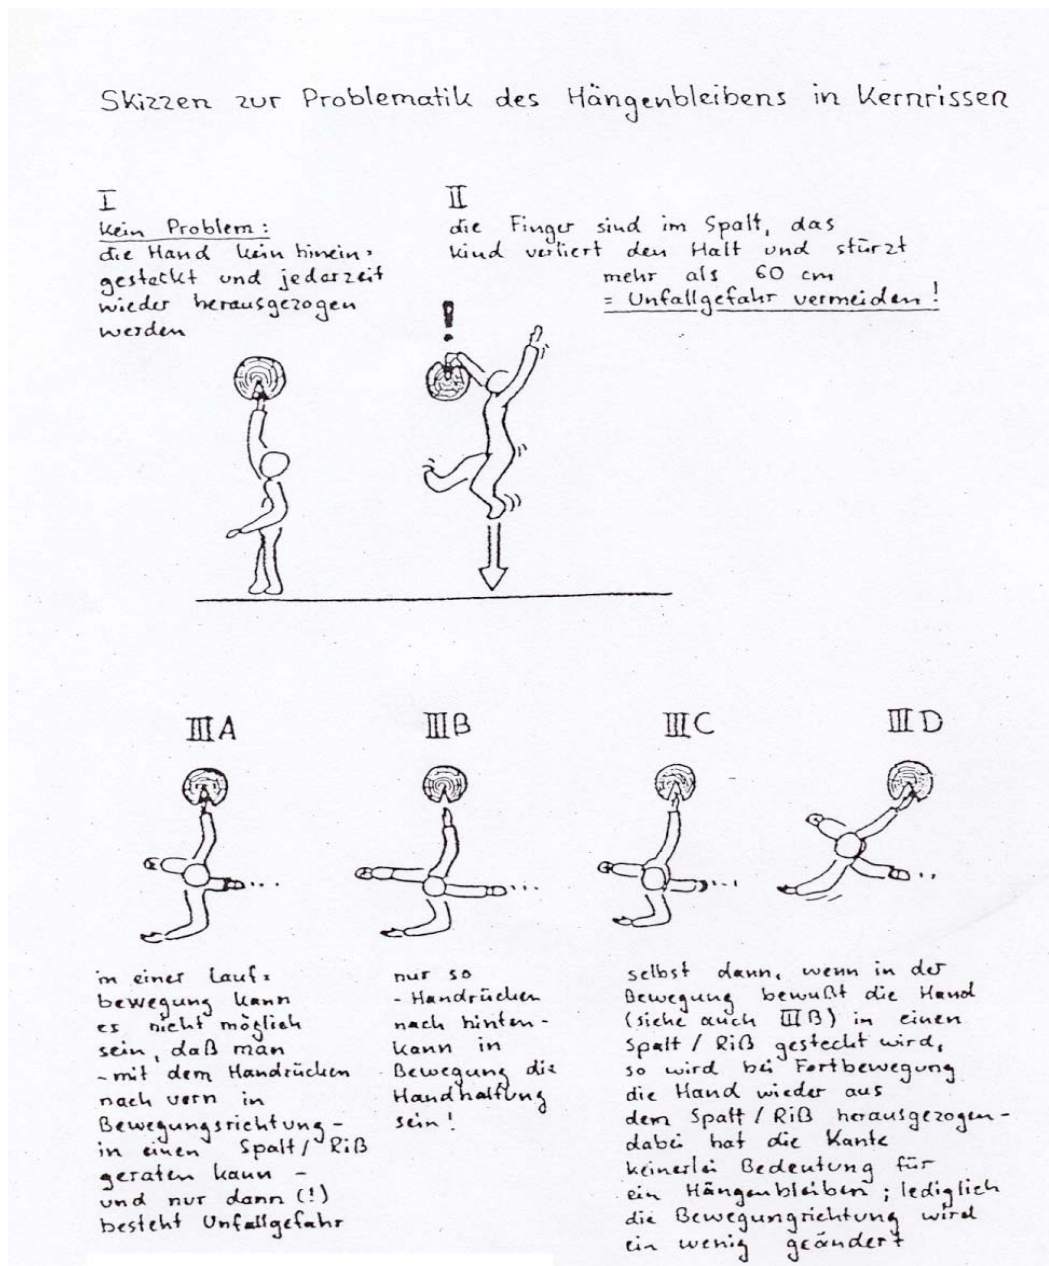 Skizzen zur Problematik des Hängenbleibens in Kernrissen
I
kein Problem:
die Hand kein hinein=
gesteckt und jederzeit
wieder herausgezogen
werden
II
die Finger sind im Spalt, das
Kind verliert den Halt und stürzt
mehr als 60 cm
= Unfallgefahr vermeiden!
!
III A
III B
III C
III D
in einer Lauf=
bewegung kann
es nicht möglich
sein, daß man
- mit dem Handrücken
nach vorn in
Bewegungsrichtung -
in einen Spalt/Riß
geraten kann -
und nur dann (!)
besteht Unfallgefahr
nur so
- Handrücken
nach hinten -
kann in
Bewegung die
Handhaltung
sein!
selbst dann, wenn in der
Bewegung bewußt die Hand
(siehe auch III B) in einen
Spalt / Riß gesteckt wird,
so wird bei Fortbewegung
die Hand wieder aus
dem Spalt / Riß herausgezogen -
dabei hat die Kante
keinerlei Bedeutung für
ein Hängenbleiben; lediglich
die Bewegungrichtung wird
ein wenig geändert